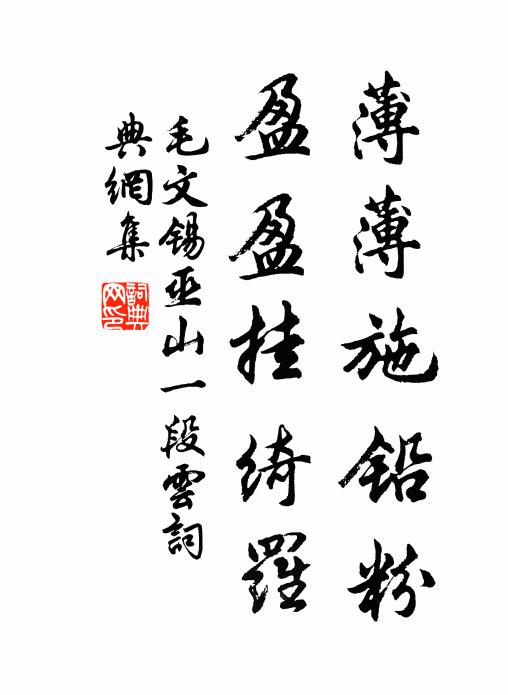 薄薄施铅粉
盈盈挂綺羅
毛文锡巫山一段雲詞
典網集
詞典
网印